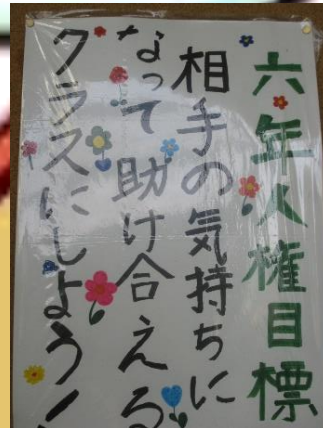 六年人権目標
相手の気持ちに
なって助け合える
クラスにしよう！